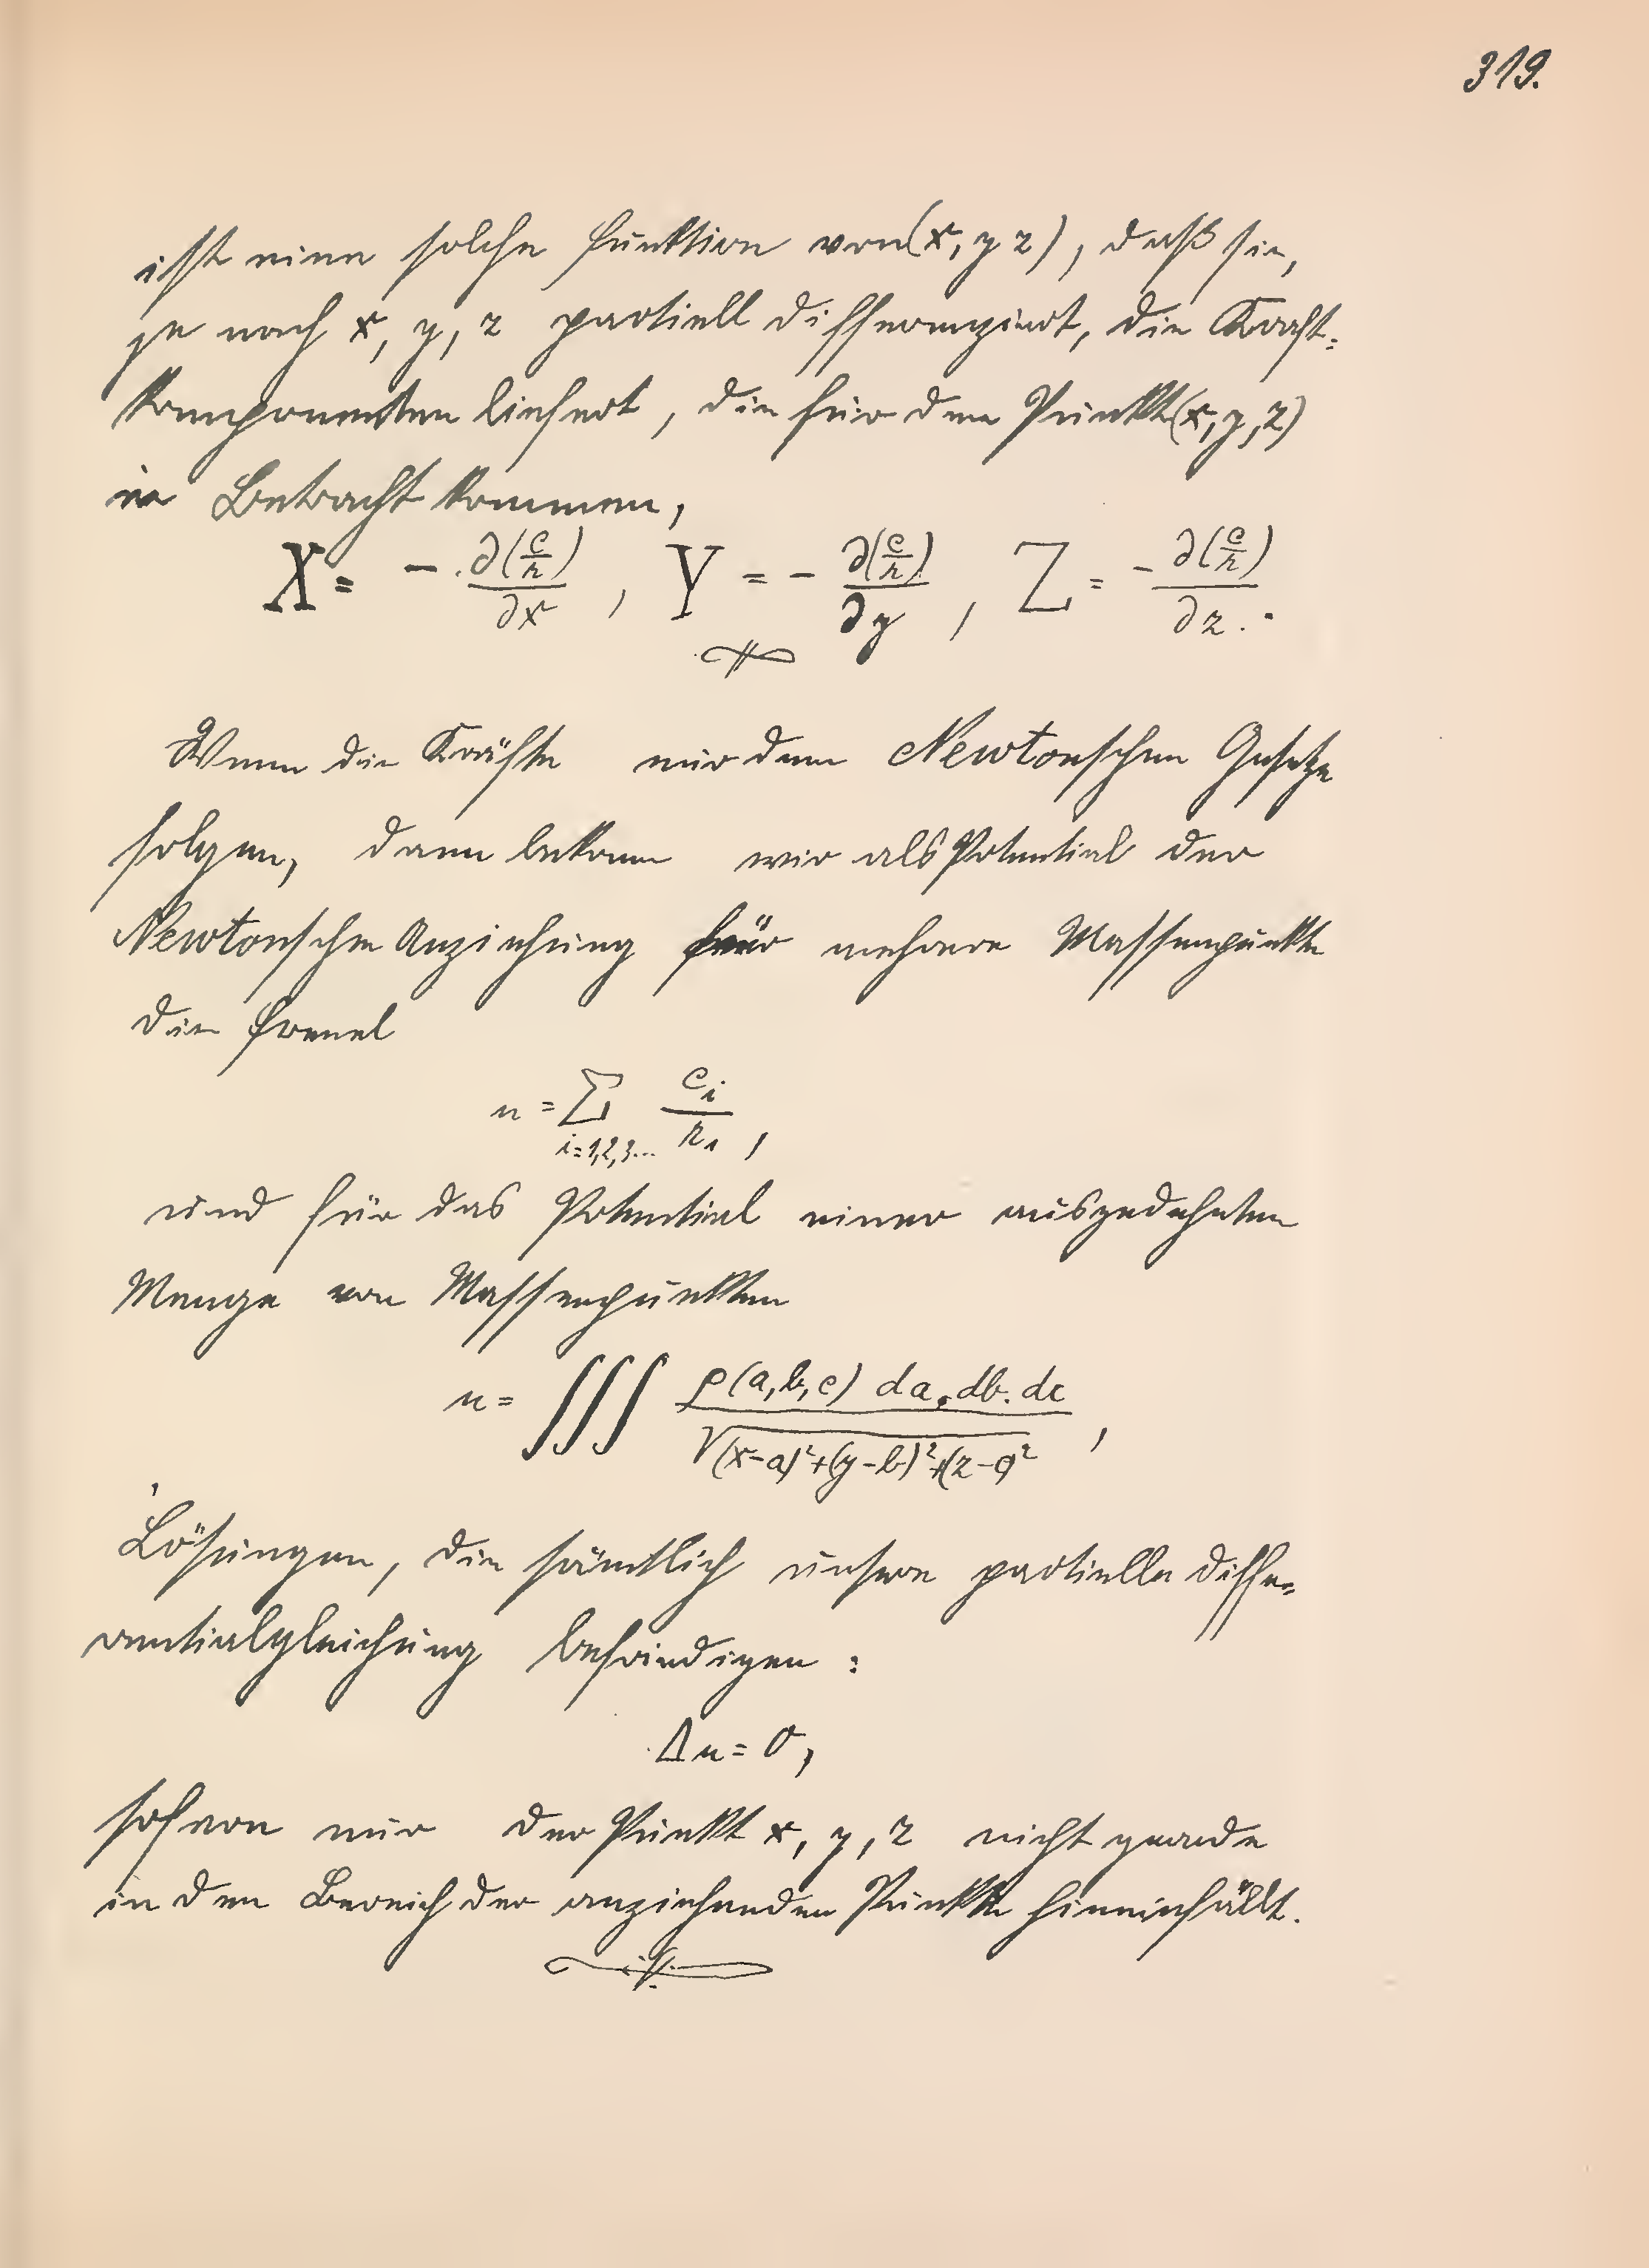 319.
ist eine solche Funktion von (x, y z), daß sie,
je nach x, y, z partiell differenziert, die Kraft-
komponenten liefert, die für den Punkt (x, y, z)
in Betracht kommen,
X = - ∂(c/r)/∂x , Y = - ∂(c/r)/∂y , Z = - ∂(c/r)/∂z .
Wenn die Kräfte nur dem Newtonschen Gesetze
folgen, dann bekom wir als Potential der
Newtonschen Anziehung für mehrere Massenpunkte
die Formel
u = ∑ i=1,2,3... c_i / r_1 ,
und für das Potential einer ausgedehnten
Menge von Massenpunkten
u = ∫∫∫ ρ(a, b, c) da. db. dc / √(x-a)²+(y-b)²+(z-c)² ,
Lösungen, die sämtlich unsere partielle Diffe-
rentialgleichung befriedigen :
Δu = 0,
sofern nur der Punkt x, y, z nicht gerade
in den Bereich der anziehenden Punkte hineinfällt.